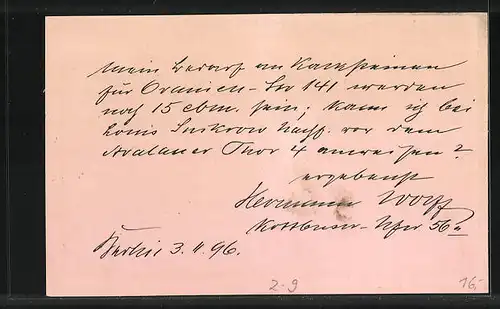 Mein Bedarf an Kalksteinen
für Oranien-Str 141 werden
noch 15 cbm. sein; kann ich bei
Louis Nachf. vor dem
Thor 4 anweisen?
ergebenst
Hermann Wolff
Kottbuser-Ufer 56a
Berlin 3. 11. 96.
2-9 16,-